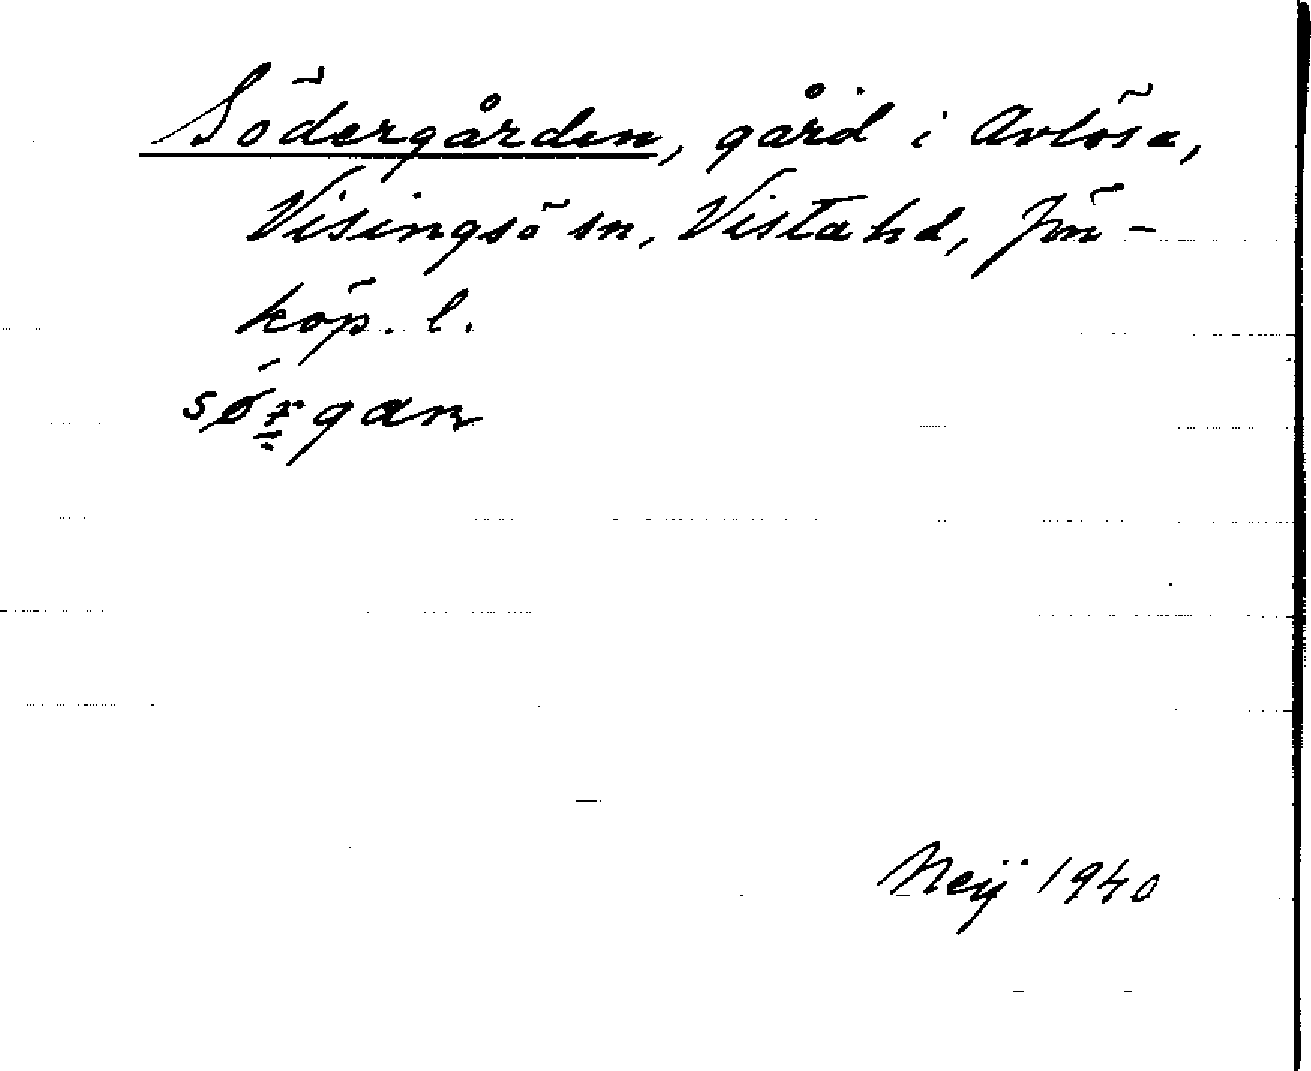 Södergården, gård i Avlösa,
Visingsö sn, Vista hd, Jön-
köp. l.
sǿrgan
Neij 1940